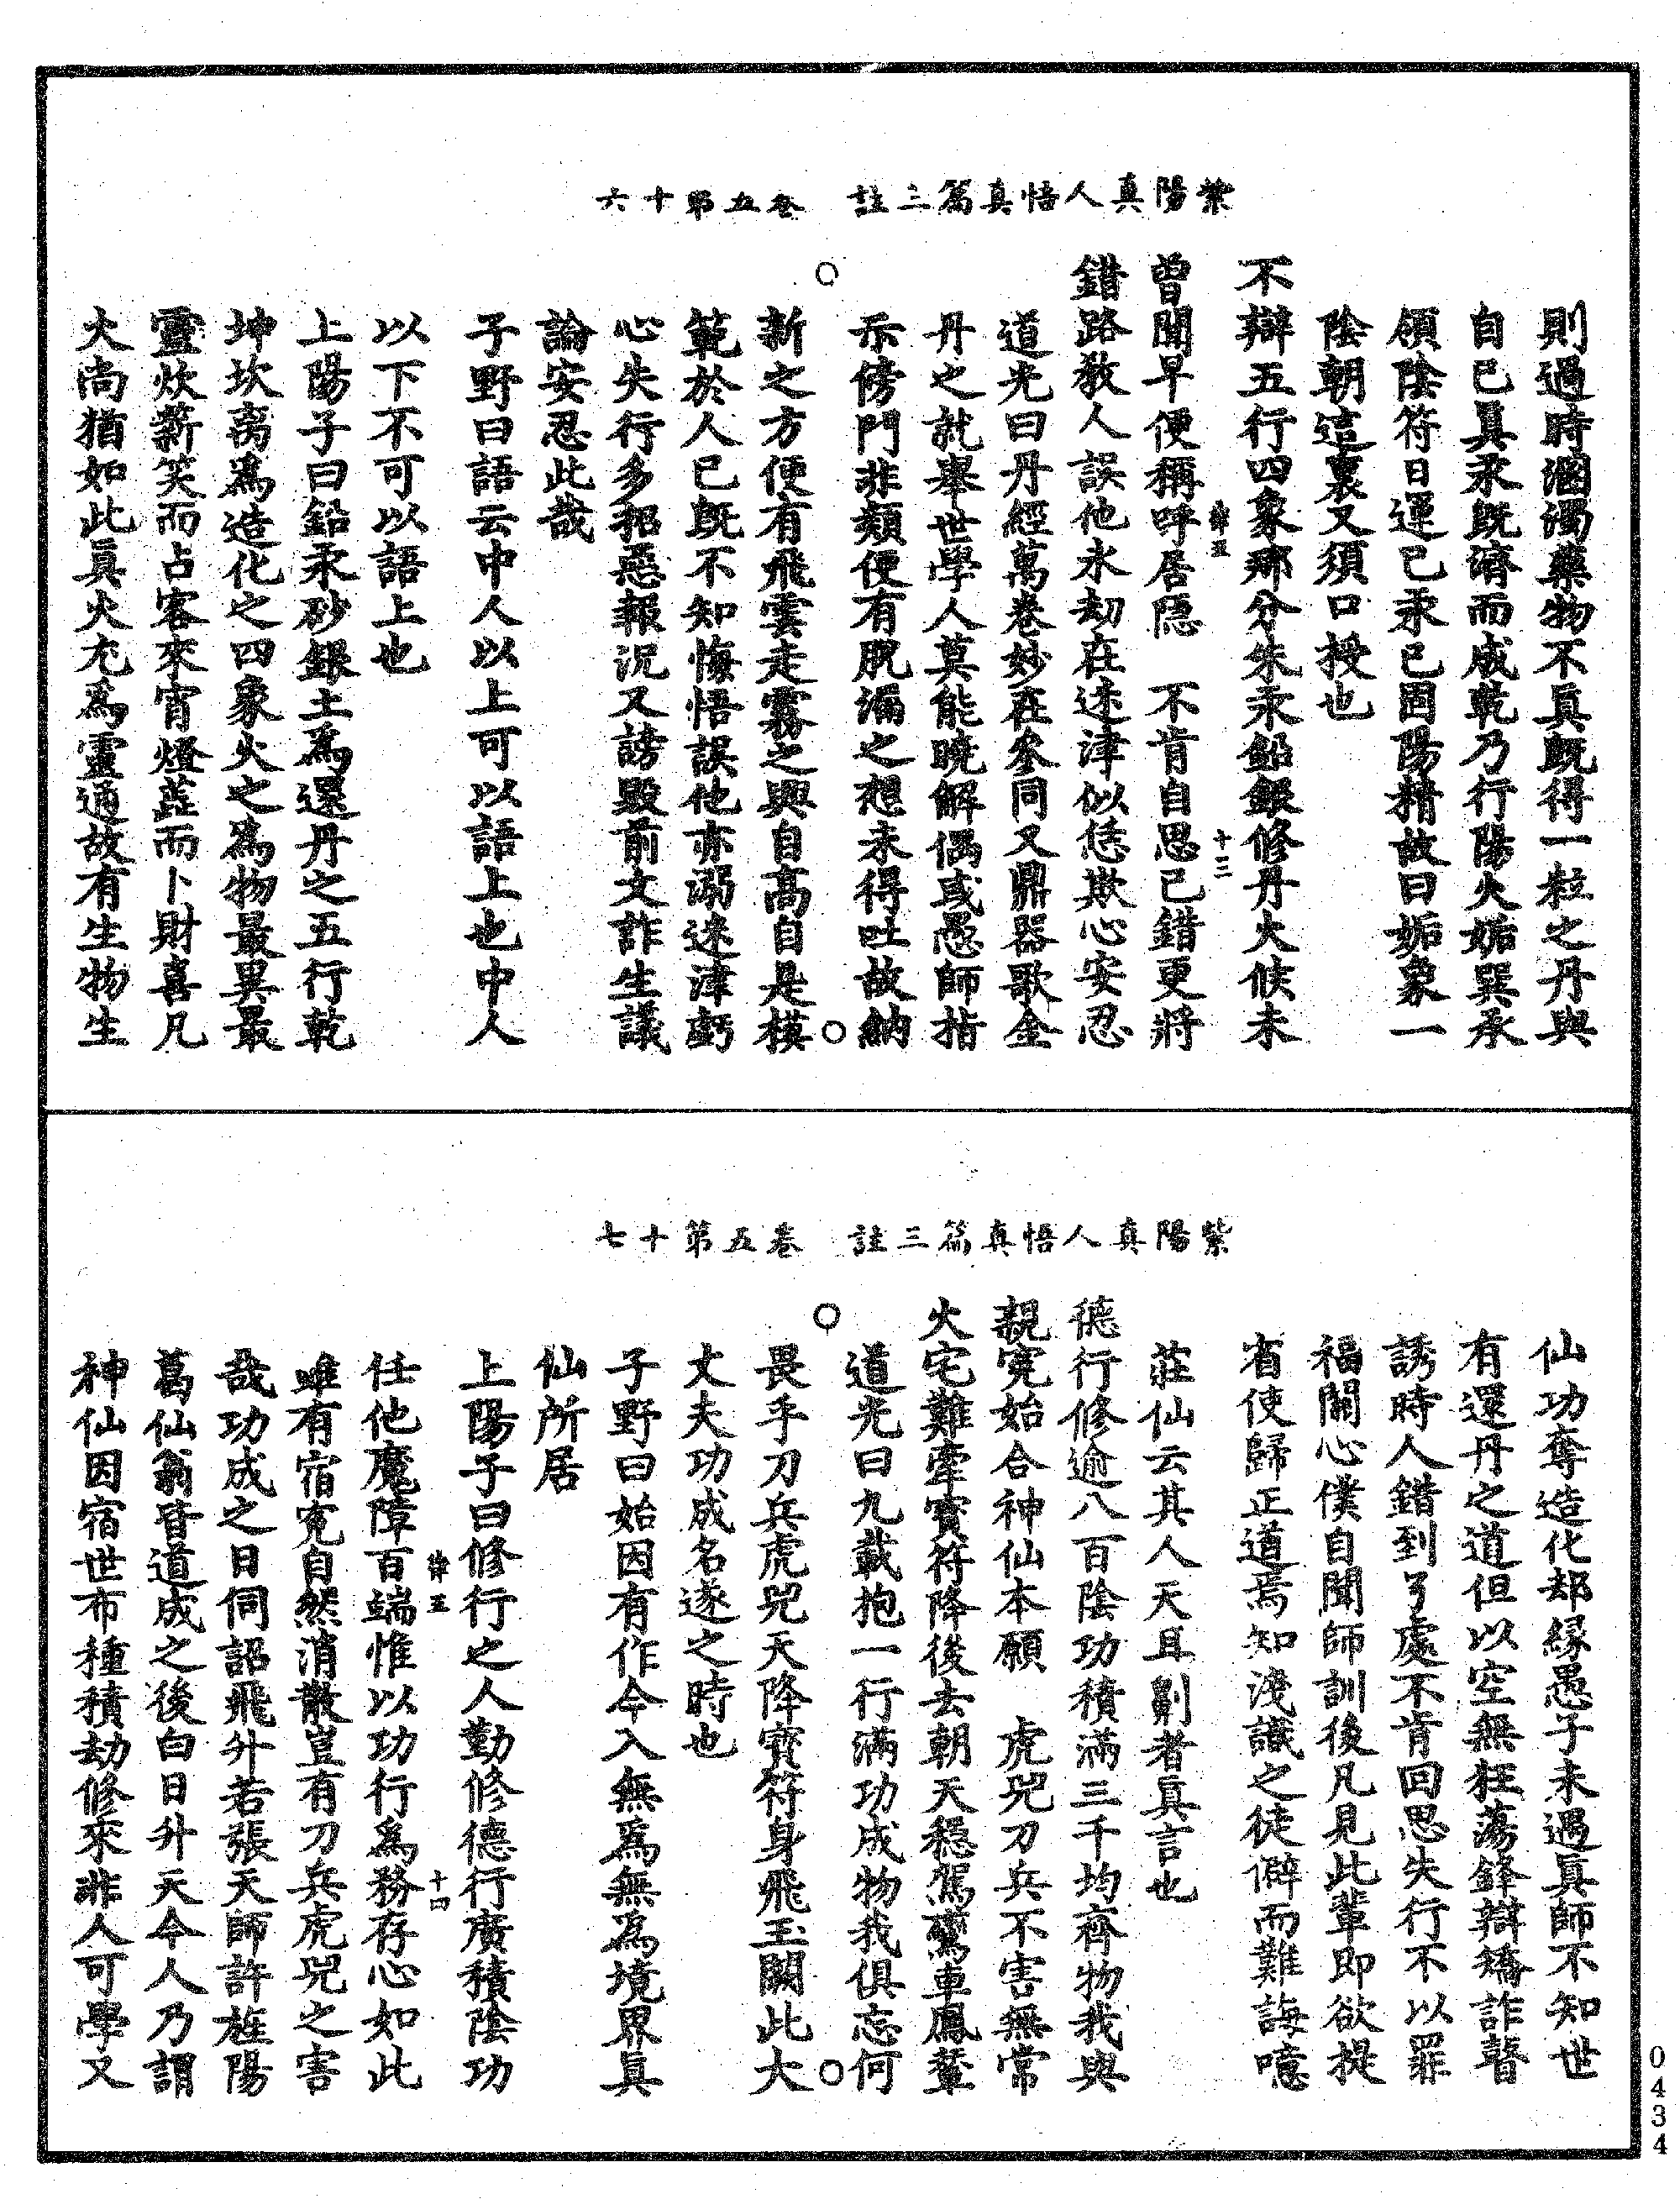 紫陽真人悟真篇三註　卷五第十六
則過時溷濁藥物不真既得一粒之丹與
自己真汞既濟而成乾乃行陽火姤巽承
領陰符日運己汞已固陽精故曰姤象一
陰朝這裏又須口授也
不辯五行四象那分朱汞鉛銀修丹火候未
律五　十三
曾聞早便稱呼居隐　不肯自思己錯更將
錯路教人誤他永劫在迷津似恁欺心安忍
道光曰丹經萬卷妙在參同又鼎器歌金
丹之訛舉世學人莫能曉解偶或愚師指
示傍門非類便有脫漏之想未得吐故納
新之方便有飛雲走霧之興自高自是模
範於人已既不知悔悟誤他亦溺迷津虧
心失行多招惡報況又謗毀前文詐生議
論安忍此哉
子野曰語云中人以上可以語上也中人
以下不可以語上也
上陽子曰鉛汞砂銀土為還丹之五行乾
坤坎离為造化之四象火之為物最異最
靈炊薪笑而占客來宵燈蕋而卜財喜凡
火尚猶如此真火尢為靈通故有生物生
紫陽真人悟真篇三註　卷五第十七
仙功奪造化却緣愚子未遇真師不知世
有還丹之道但以空無枉蕩鋒辯矯詐瞽
誘時人錯到了處不肯回思失行不以罪
福關心僕自聞師訓後凡見此輩即欲提
省使歸正道焉知淺識之徒僻而難誨噫
莊仙云其人天且劓者真言也
德行修逾八百陰功積滿三千均齊物我與
親寃始合神仙本願　虎兕刀兵不害無常
火宅難牽寶符降後去朝天穩駕鸞車鳳輦
道光曰九載抱一行滿功成物我俱忘何
畏乎刀兵虎兕天降寶符身飛玉闕此大
丈夫功成名遂之時也
子野曰始因有作今入無為無為境界真
仙所居
上陽子曰修行之人勤修德行廣積陰功
律五　十四
任他魔障百端惟以功行為務存心如此
雖有宿寃自然消散豈有刀兵虎兕之害
哉功成之日伺詔飛升若張天師許旌陽
葛仙翁皆道成之後白日升天今人乃謂
神仙因宿世布種積劫修來非人可學又
0434